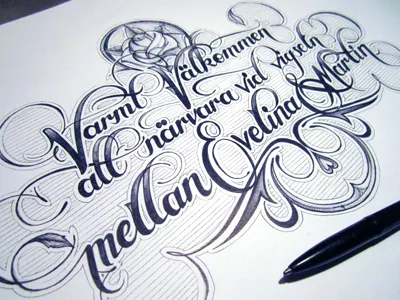 Varmt Välkommen
att närvara vid vigseln
mellan Evelina & Martin